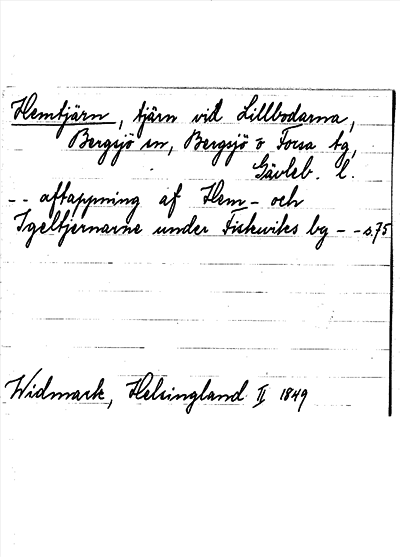 Hemtjärn, tjärn vid Lillbodarna,
Bergsjö sn, Bergsjö o Forsa tg,
Gävleb. l.
-- aftappning af Hem- och
Igeltjernarne under Fiskwiks bg -- s. 75
Widmark, Helsingland II 1849